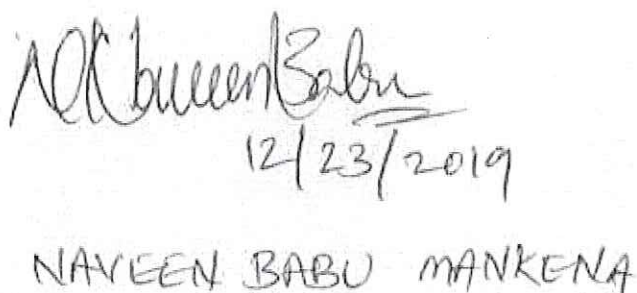 Naveen Babu
12/23/2019
NAVEEN BABU MANKENA